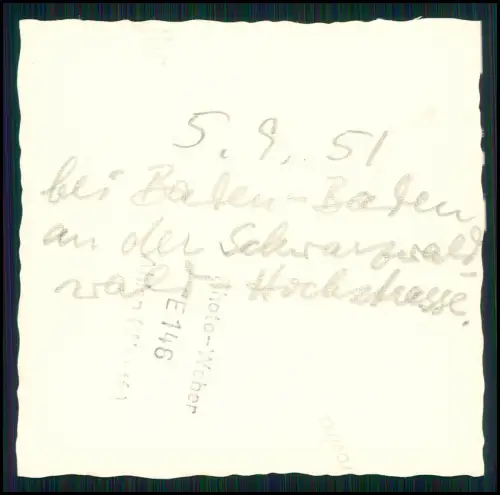 5. 9. 51
bei Baden-Baden
an der Schwarzwald-
wald Hochstrasse.
Photo-Weber
E146